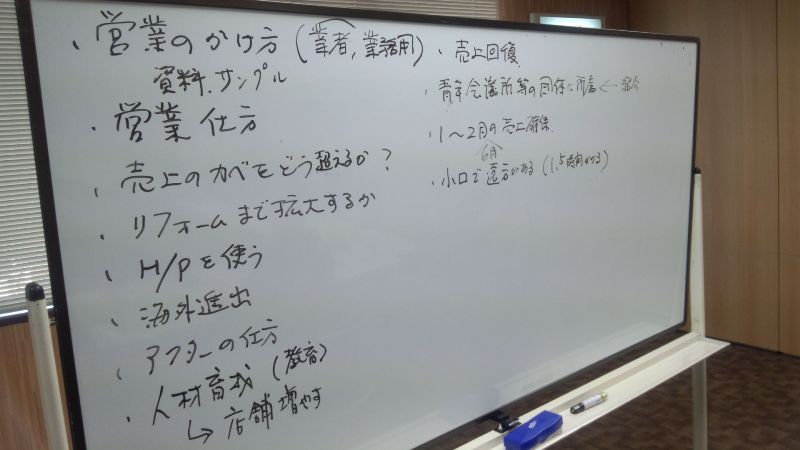 ・営業のかけ方(業者,業務用)
資料、サンプル
・営業仕方
・売上のカベをどう超えるか?
・リフォームまで拡大するか
・H/Pを使う
・海外進出
・アフターの仕方
・人材育成(教育)
↳店舗増やす
・売上回復
・青年会議所等の団体に所属←紹介
・1〜2月の売上確保
6月
・小口で遠方がある(1.5時間かかる)